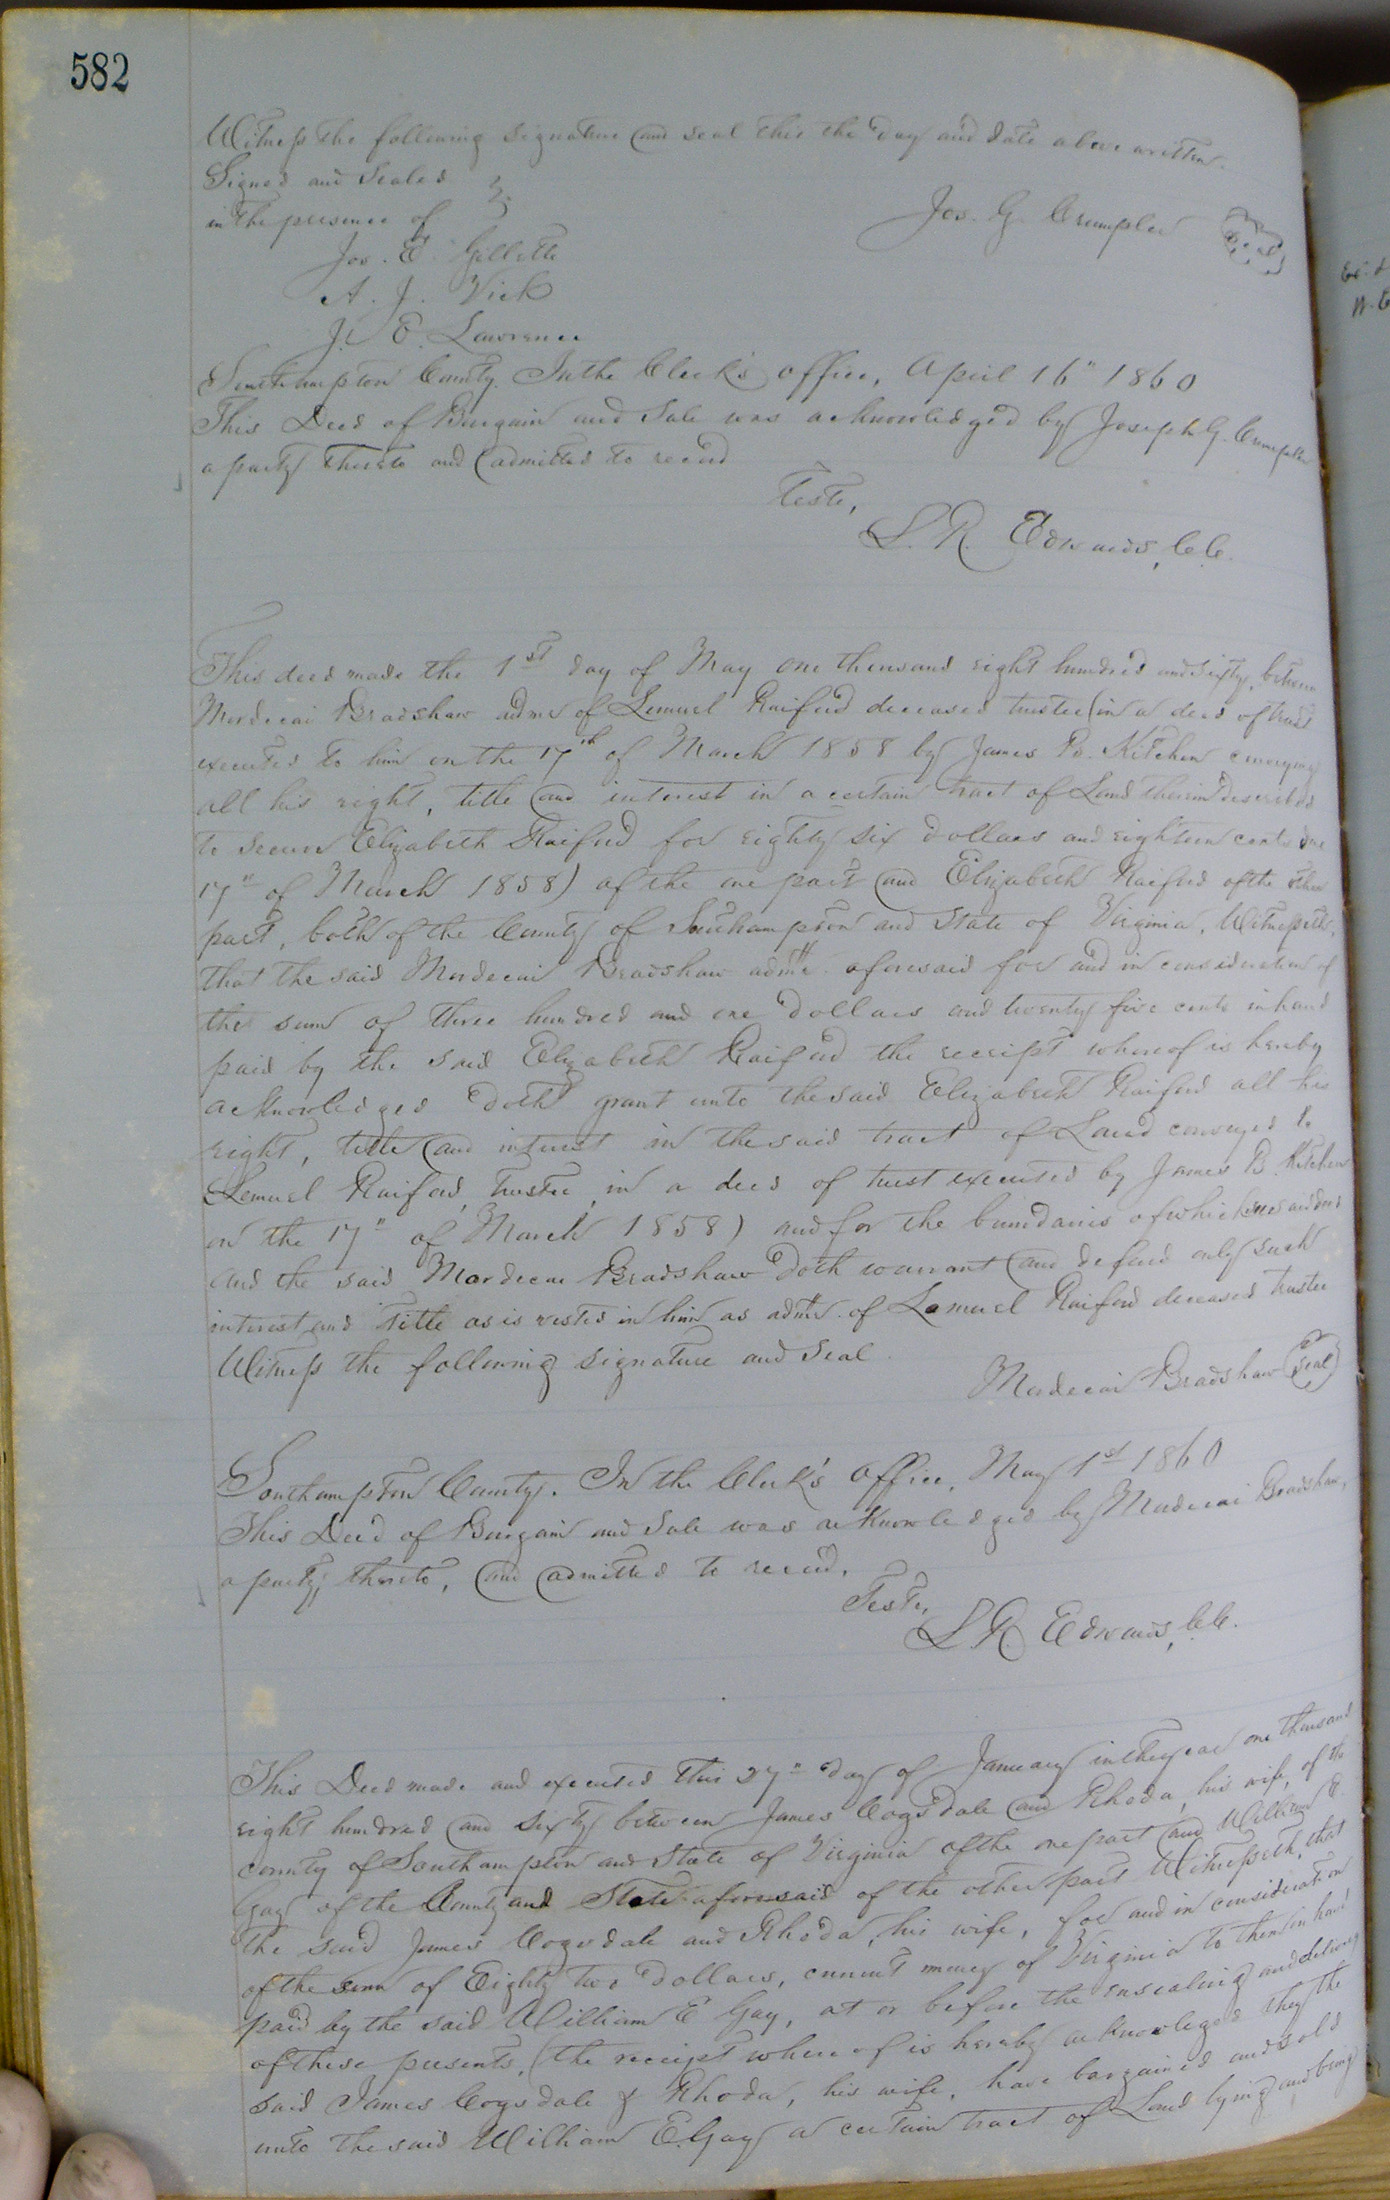 582
Witness the following signature and seal this the day and date above written.
Signed and Sealed
in the presence of
Jos. G. Crumpler Seal
Jos. E. Gillette
A. J. Vick
J. E. Lawrence
Southampton County. In the Clerk's office, April 16" 1860
This Deed of Bargain and Sale was acknowledged by Joseph G. Crumpler
a party thereto and admitted to record
Teste,
L. R. Edwards, C.C.
This deed made the 1st day of May one thousand eight hundred and sixty, between
Mordecai Bradshaw admr of Lemuel Raiford deceased trustee (in a deed of trust
executed to him on the 17th of March 1858 by James B. Kitchen conveying
all his right, title and interest in a certain tract of Land therein described
to secure Elizabeth Raiford for eighty six dollars and eighteen cents due
17" of March 1858) of the one part and Elizabeth Raiford of the other
part, both of the County of Southampton and State of Virginia, Witnesseth,
that the said Mordecai Bradshaw admr. aforesaid for and in consideration of
the sum of three hundred and one dollars and twenty five cents in hand
paid by the said Elizabeth Raiford the receipt whereof is hereby
acknowledged doth grant unto the said Elizabeth Raiford all his
right, title and interest in the said tract of Land conveyed to
Lemuel Raiford, trustee, in a deed of trust executed by James B. Kitchen
on the 17" of March 1858) and for the boundaries of which see said deed
and the said Mordecai Bradshaw doth warrant and defend only such
interest and title as is vested in him as admr. of Lemuel Raiford deceased trustee
Witness the following signature and seal.
Mordecai Bradshaw Seal
Southampton County. In the Clerk's office, May 1st 1860
This Deed of Bargain and Sale was acknowledged by Mordecai Bradshaw,
a party thereto, and admitted to record.
Teste,
L. R. Edwards, C.C.
This Deed made and executed this 27" day of January in the year one thousand
eight hundred and sixty between James Cogsdale and Rhoda, his wife, of the
county of Southampton and State of Virginia of the one part and William E.
Gay of the County and State aforesaid of the other part Witnesseth, that
the said James Cogsdale and Rhoda, his wife, for and in consideration
of the sum of Eighty two dollars, current money of Virginia to them in hand
paid by the said William E Gay, at or before the ensealing and delivery
of these presents, (the receipt where of is hereby acknowledged they the
said James Cogsdale & Rhoda, his wife, have bargained and sold
unto the said William E. Gay a certain tract of Land lying and being